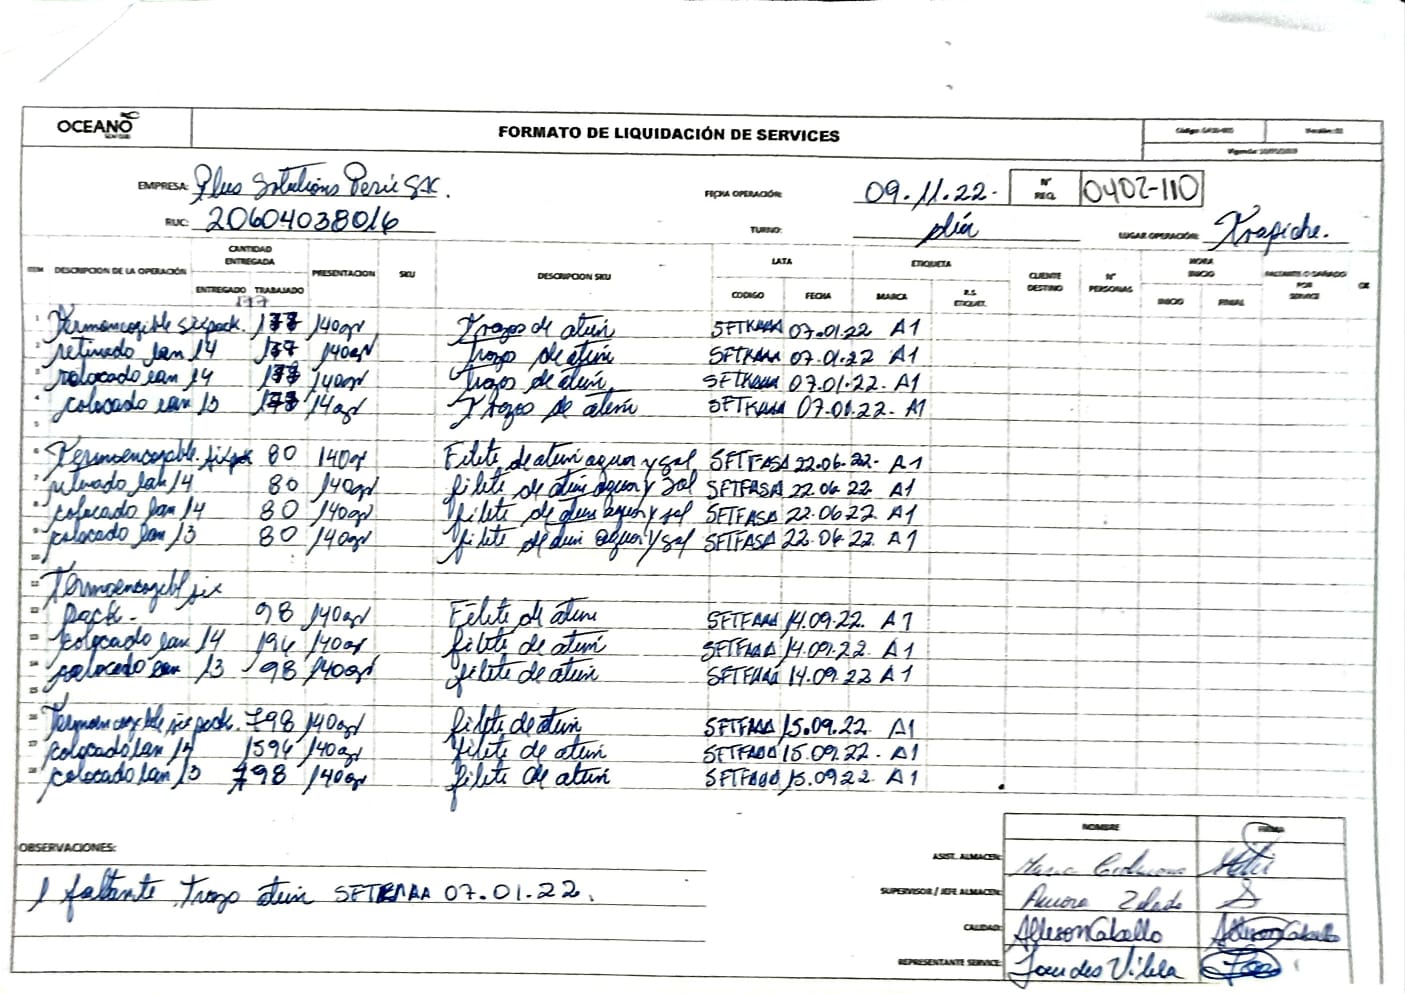 OCEANO
FORMATO DE LIQUIDACIÓN DE SERVICES
EMPRESA: Plus Solutions Perú SAC.
FECHA OPERACIÓN: 09.11.22.
N° REQ. 0402-110
RUC: 20604038016
TURNO: día
LUGAR OPERACIÓN: Trapiche.
ITEM DESCRIPCION DE LA OPERACIÓN CANTIDAD ENTREGADA PRESENTACION SKU DESCRIPCION SKU LATA ETIQUETA CLIENTE DESTINO N° PERSONAS HORA INICIO FALTANTE O DAÑADO POR SERVICE OK
ENTREGADO TRABAJADO CODIGO FECHA MARCA R.S. ETIQUET. INICIO FINAL
177
1 Termoencogible sixpack. 140gr Trozos de atún 07.01.22 A1
2 retirado lan 14 140gr Trozo de atún 07.01.22 A1
3 colocado lan 14 140gr Trozos de atún 07.01.22. A1
4 colocado lan 13 14agr Trozos de atún 07.01.22. A1
5
6 Termoencogible. sixpac 80 140gr Filete de atun agua y sal SFTFASA 22.06.22- A1
7 retirado lan 14 80 140gr filete de atun agua y sal SFTFASA 22.06.22 A1
8 colocado lan 14 80 140gr filete de atun agua y sal SFTFASA 22.06.22. A1
9 colocado lan 13 80 140gr filete de atun agua y sal SFTFASA 22.06.22. A1
10
11 Termoencogibl six
12 pack. 98 140gr Filete de atún SFTFAAA 14.09.22. A1
13 colocado lan 14 196 140gr filete de atún SFTFAAA 14.09.22. A1
14 colocado lan 13 98 140gr filete de atún SFTFAAA 14.09.22 A1
15
16 Termoencogible six pack. 798 140gr filete de atún SFTFAAA 15.09.22. A1
17 colocado lan 14 1596 140gr filete de atún SFTFAAA 15.09.22. A1
18 colocado lan 13 798 140gr filete de atún SFTFAAA 15.09.22. A1
NOMBRE FIRMA
OBSERVACIONES:
ASIST. ALMACEN:
1 faltante Trozo atún 07.01.22.
SUPERVISOR / JEFE ALMACEN: Aurora
CALIDAD: Allison Cabello
REPRESENTANTE SERVICE: Lourdes Vilela